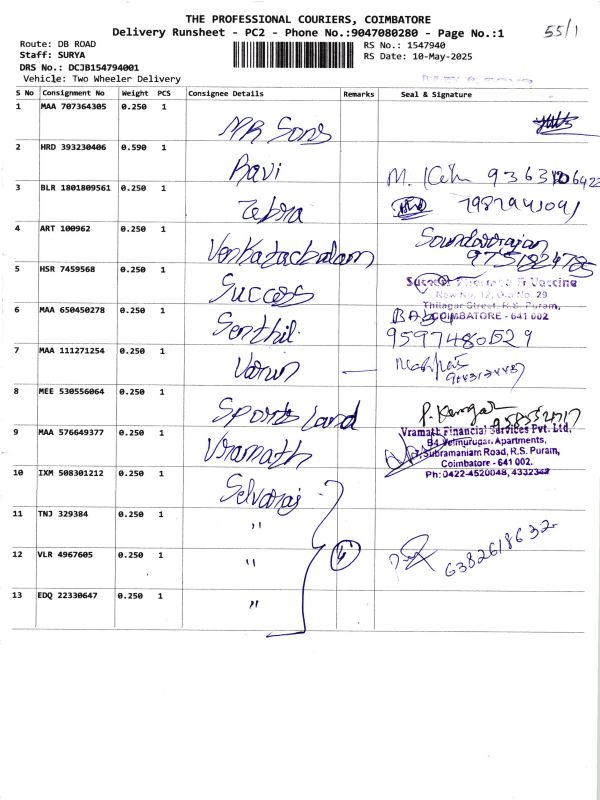 THE PROFESSIONAL COURIERS, COIMBATORE
Delivery Runsheet - PC2 - Phone No.:9047080280 - Page No.:1
55/1
Route: DB ROAD
RS No.: 1547940
Staff: SURYA
RS Date: 10-May-2025
DRS No.: DCJB154794001
Vehicle: Two Wheeler Delivery
S No Consignment No Weight PCS Consignee Details Remarks Seal & Signature
1 MAA 707364305 0.250 1 MR Sons
2 HRD 393230406 0.590 1 Ravi
3 BLR 1801809561 0.250 1 Zebra
4 ART 100962 0.250 1 Venkatachalam Soundarrajan
5 HSR 7459568 0.250 1 Success
& Vaccine
New No. 12, Old No. 29
Thilagar Street, R.S. Puram,
COIMBATORE - 641 002
6 MAA 650450278 0.250 1 Senthil 9597480529
7 MAA 111271254 0.250 1 Varun
8 MEE 530556064 0.250 1 Sports Land
9 MAA 576649377 0.250 1 Vramath
Vramath Financial Services Pvt. Ltd.
B4, Velmurugan Apartments,
Subramaniam Road, R.S. Puram,
Coimbatore - 641 002.
Ph: 0422-4520048, 4332362
10 IXM 508301212 0.250 1 Selvaraj
11 TNJ 329384 0.250 1 "
12 VLR 4967605 0.250 1 " 4 6382618632
13 EDQ 22330647 0.250 1 "